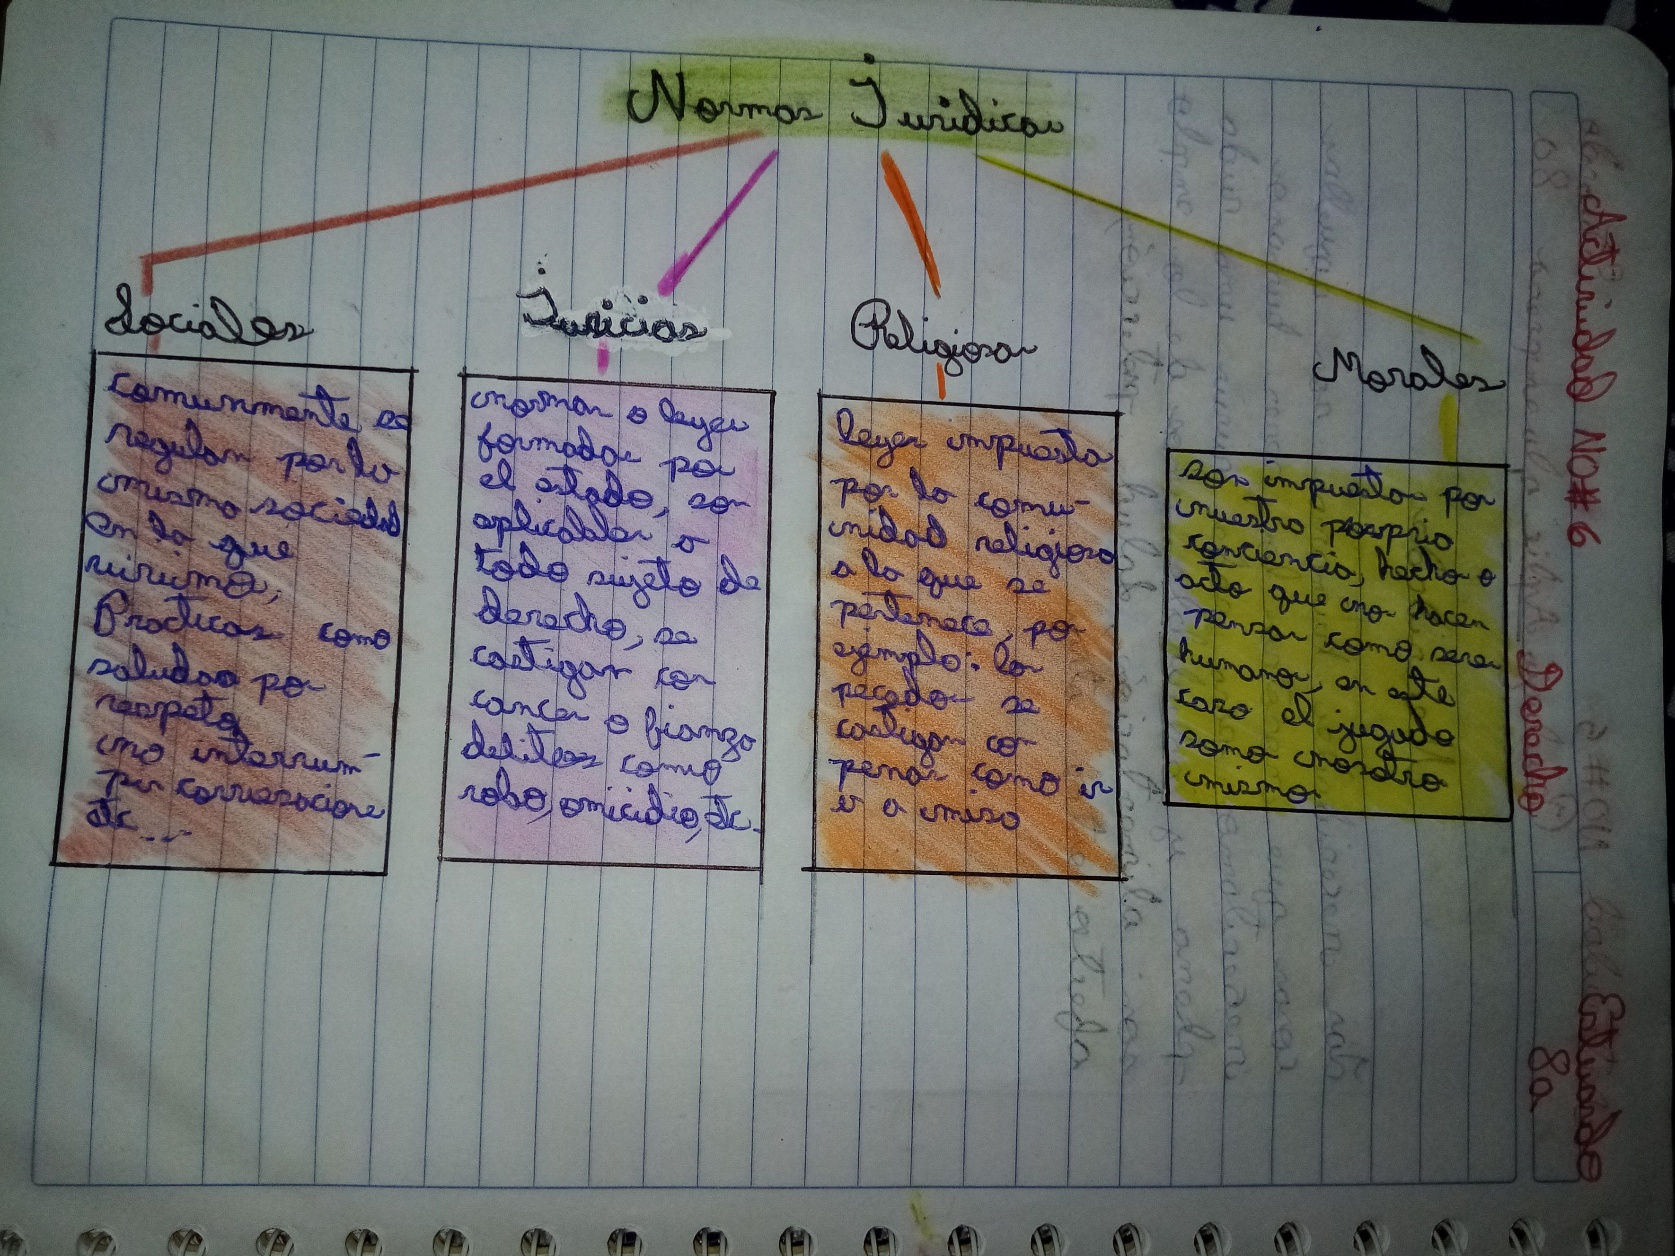 Normas Juridicas
Sociales
comunmente se
regulan por la
misma sociedad
en la que
vivimos,
Practicas como
saludar por
respeto,
no interrum-
pir conversaciones
etc...
Juricias
normas o leyes
formadas por
el estado, son
aplicables a
todo sujeto de
derecho, se
castigan con
cancer o fianza
delitos como
robo, omicidio, etc.
Religiosas
leyes impuesta
por la comu-
nidad religiosa
a la que se
pertenece, por
ejemplo: los
pecados se
castigan con
penas como ir
ir a misa
Morales
son impuestas por
nuestra propria
conciencia, hecho o
acto que nos hacen
pensar como seres
humanos, en este
caso el jugado
somos nosotros
mismos.
Actividad No#6
Derecho
Estuardo
8a